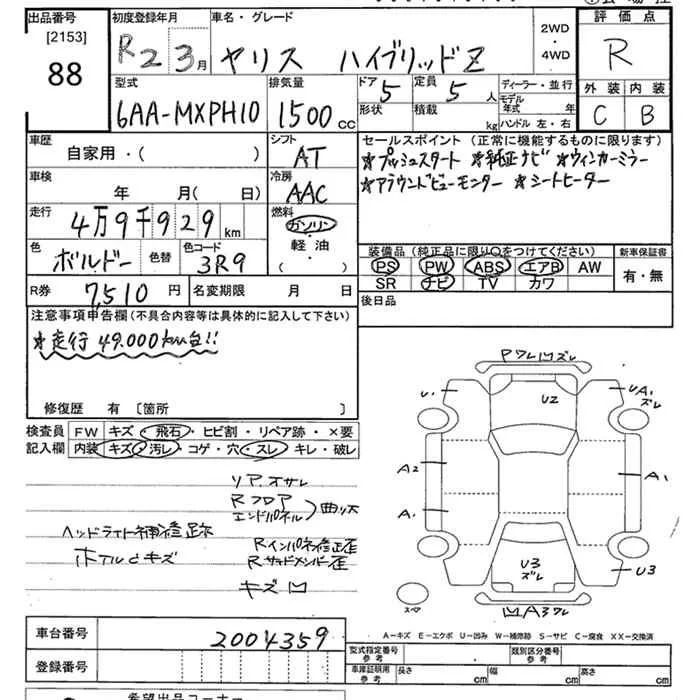 出品番号 初度登録年月 車名・グレード 評価点
[2153]
88
R2 3月 ヤリス ハイブリッドZ
2WD
・
4WD
R
型式 排気量 ドア 5 定員 5人 ディーラー・並行
外装 内装
6AA-MXPH10 1500cc 形状 積載 kg モデル年式 年
ハンドル 左・右
C B
車歴 シフト セールスポイント (正常に機能するものに限ります)
自家用・( ) AT ★プッシュスタート ★純正ナビ ★ウィンカーミラー
車検 冷房 ★アラウンドビューモニター ★シートヒーター
年 月(日) AAC
走行 4万9千929km 燃料 ガソリン
軽油・( )
色 ボルドー 色替 色コード 3R9
装備品 (純正品に限り○をつけてください) 新車保証書
PS PW ABS エアB AW 有・無
SR ナビ TV カワ
R券 7,510円 名変期限 月 日 後日品
注意事項申告欄(不具合内容等は具体的に記入して下さい)
★走行49.000km台!!
修復歴 有 [箇所 ]
検査員 FW キズ・飛石・ヒビ割・リペア跡・×要
記入欄 内装 キズ・汚レ・コゲ・穴・スレ・キレ・破レ
リア オサレ
Rフロア
エンドパネル 曲リス
ヘッドライト補修跡
Rインパネ修正歪
Rサイドメンバー歪
キズ凹
PワレUズレ
U1 U2 UA1
ズレ
A2 A1
A1
U3
ズレ
U3
スペア
A3ワレ
A-キズ E-エクボ U-凹み W-補修跡 S-サビ C-腐食 XX-交換済
車台番号 2004359
型式指定番号
参考
類別区分番号
参考
登録番号 車庫証明用
参考
長さ cm 幅 cm 高さ cm
希望出品コーナー